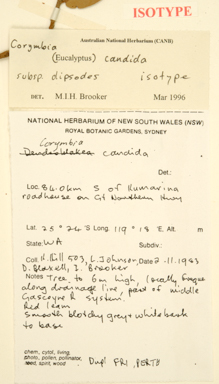 ISOTYPE
Australian National Herbarium (CANB)
Corymbia
(Eucalyptus) candida
subsp. dipsodes isotype
DET. M.I.H. Brooker Mar 1996
NATIONAL HERBARIUM OF NEW SOUTH WALES (NSW)
ROYAL BOTANIC GARDENS, SYDNEY
Corymbia
candida
Det.:
Loc. 84.0km S of Kumarina
roadhouse on Gt Northern Hwy
Lat. 25° 24' S Long. 119° 18' E Alt. m
State: WA Subdiv.:
Coll. K. Hill 503, L. Johnson, Date 2.11.1983
D. Blaxell, I. Brooker
Notes Tree to 6m high, locally
along drainage line, part of middle
Gascoyne R system.
Red loam
Smooth blotchy grey + white bark
to base
chem, cytol, living,
photo, pollen, pollinator,
seed, spirit, wood
Dupl FRI, PERTH